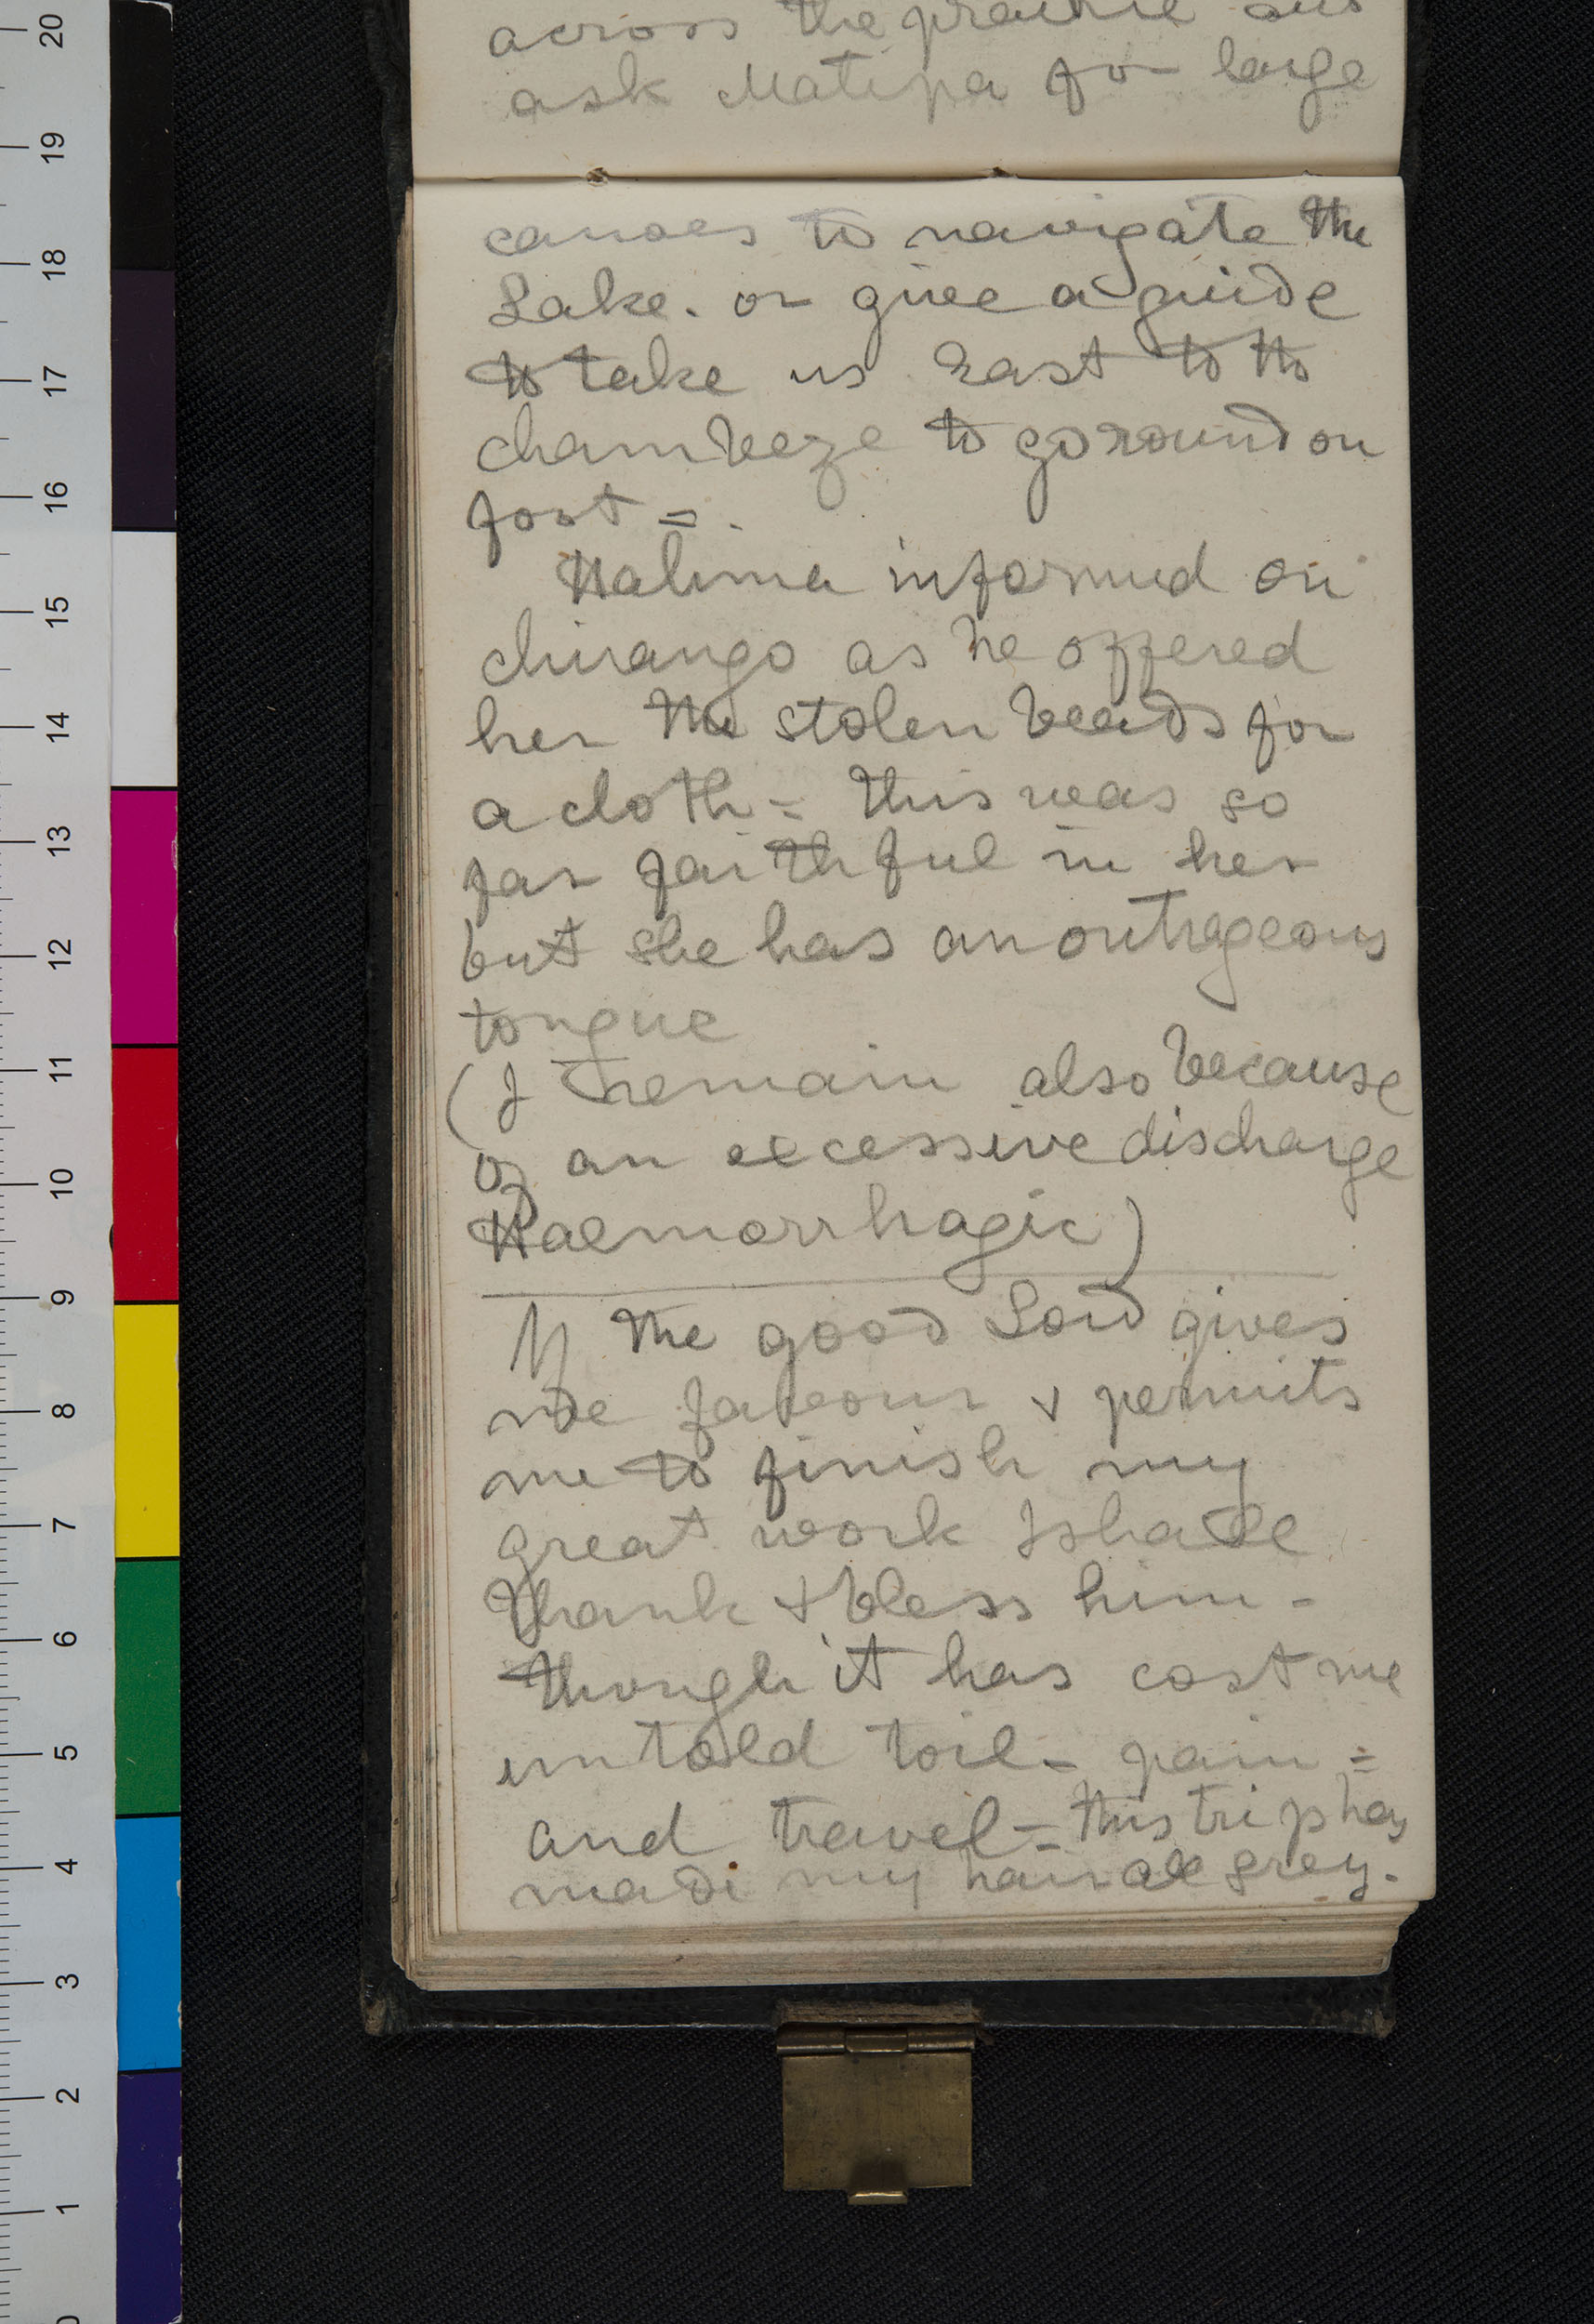 across the prairie and
ask Matipa for large
canoes to navigate the
Lake. or give a guide
to take us East to the
Chambeze to go round on
foot =.
Halima informed on
Chirango as he offered
her the stolen beads for
a cloth = this was so
far faithful in her
but she has an outrageous
tongue
(I remain also because
of an excessive discharge
Haemorrhagic)
If the good Lord gives
me favour & permits
me to finish my
great work I shall
thank & bless him -
though it has cost me
untold toil - pain =
and travel = this trip has
made my hair all grey.
20
19
18
17
16
15
14
13
12
11
10
9
8
7
6
5
4
3
2
1
0